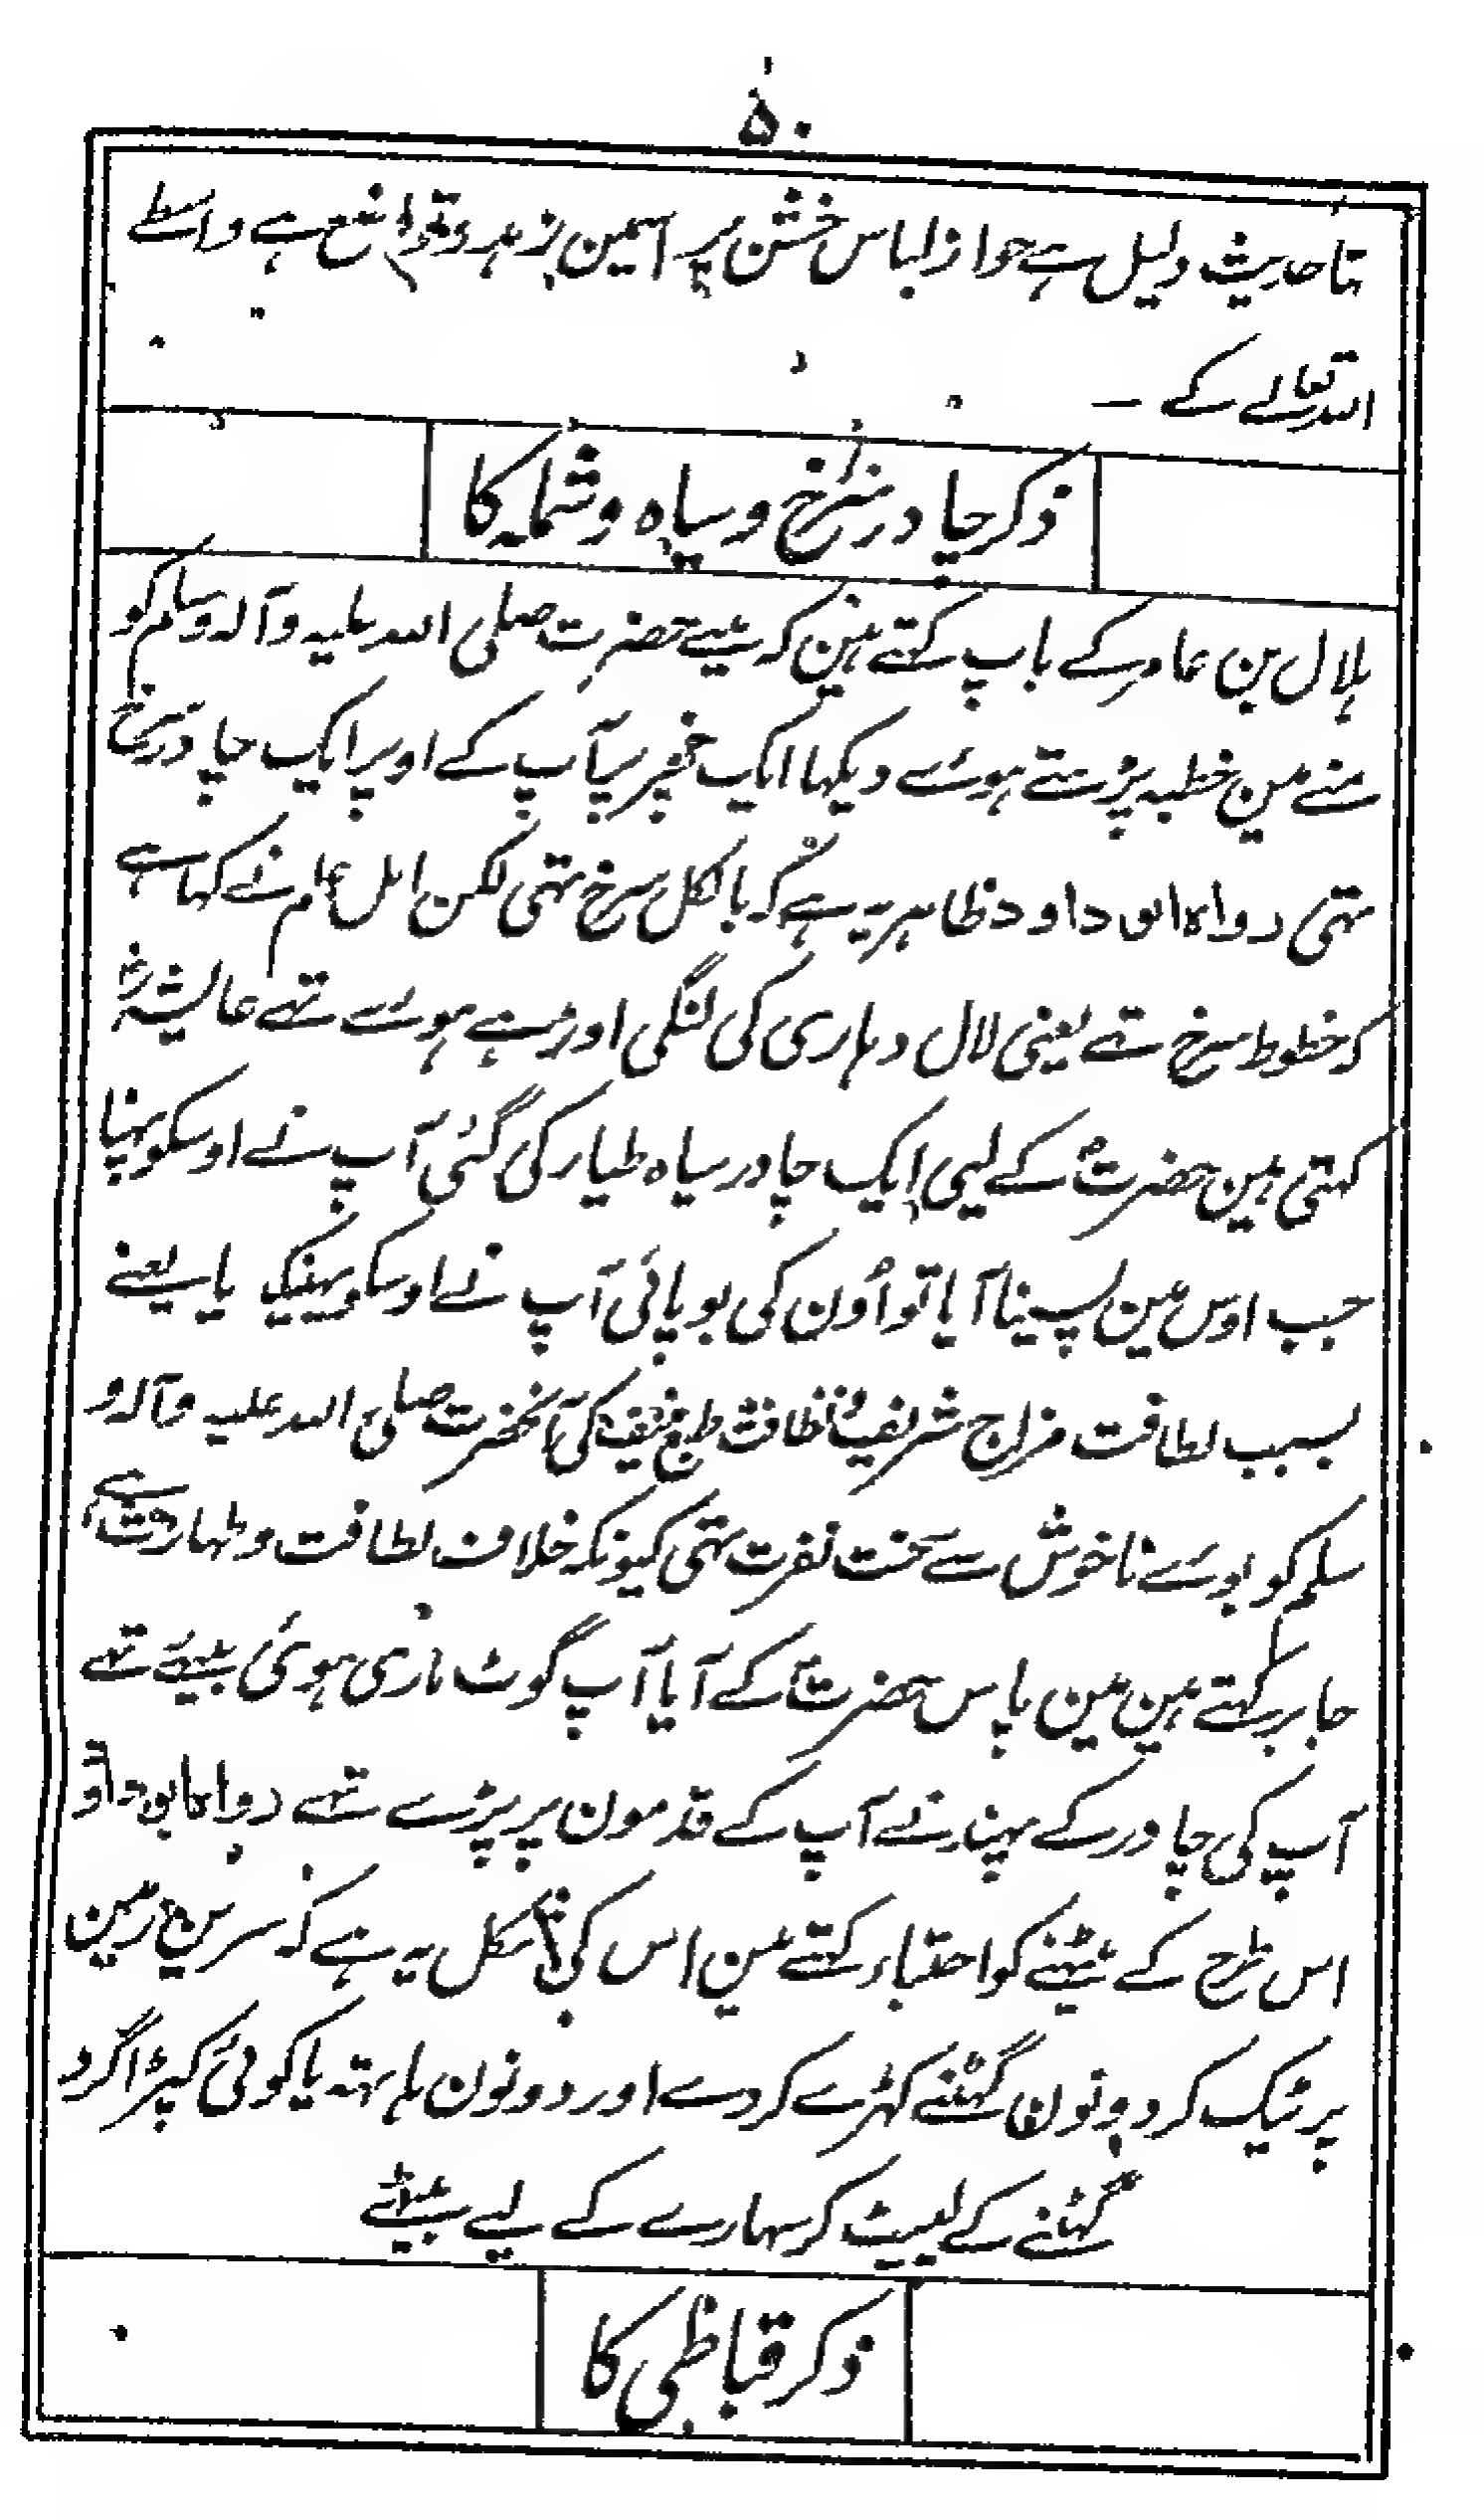 ۵۰
تا حدیث دلیل ہے جواز لباس خشن پر اسمین زہد و تواضع ہے واسطے
اللہ تعالے کے ۔
ذکر چادر سرخ و سیاہ و شملہ کا
ہلال بن عامر کے باپ کہتے ہین کہ مینے حضرت صلی اللہ علیہ وآلہ وسلم کو
منے مین خطبہ پڑہتے ہوئے دیکہا ایک خچر پر آپ کے اوپر ایک چادر سرخ
تہی رواہ ابو داود ظاہر یہ ہے کہ بالکل سرخ تہی لکن اہل علم نے کہا ہے
کہ خطوط سرخ تہے یعنی لال دہاری کی لنگی اوڑہے ہوئے تہے عایشہ رض
کہتی ہین حضرتؐ کے لیی ایک چادر سیاہ طیار کی گئی آپ نے اوسکو پہنا
جب اوس مین پسینا آیا تو اُون کی بو پائی آپ نے اوسکو پہینک یا یعنے
بسبب لطافت مزاج شریف و نظافت طبع منیف کی آنحضرت صلی اللہ علیہ وآلہ و
سلم کو بوئے ناخوش سے سخت نفرت تہی کیونکہ خلاف لطافت و طہارت ہے
جابر کہتے ہین مین پاس حضرتؐ کے آیا آپ گوٹ ماری ہوئی بیٹہے تہے
آپ کی چادر کے پہندنے آپ کے قدمون پر پڑے تہے رواہ ابو داود
اس طرح کے بیٹہنے کو احتباء کہتے ہین اس کی شکل یہ ہے کہ سرین زمین
پر ٹیک کر دونون گہٹنے کہڑے کردے اور دونون ہاہتہ یا کوئی کپڑا گرد
گہٹنے کے لپیٹ کر سہارے کے لیے بیٹہے
ذکر قباطی کا